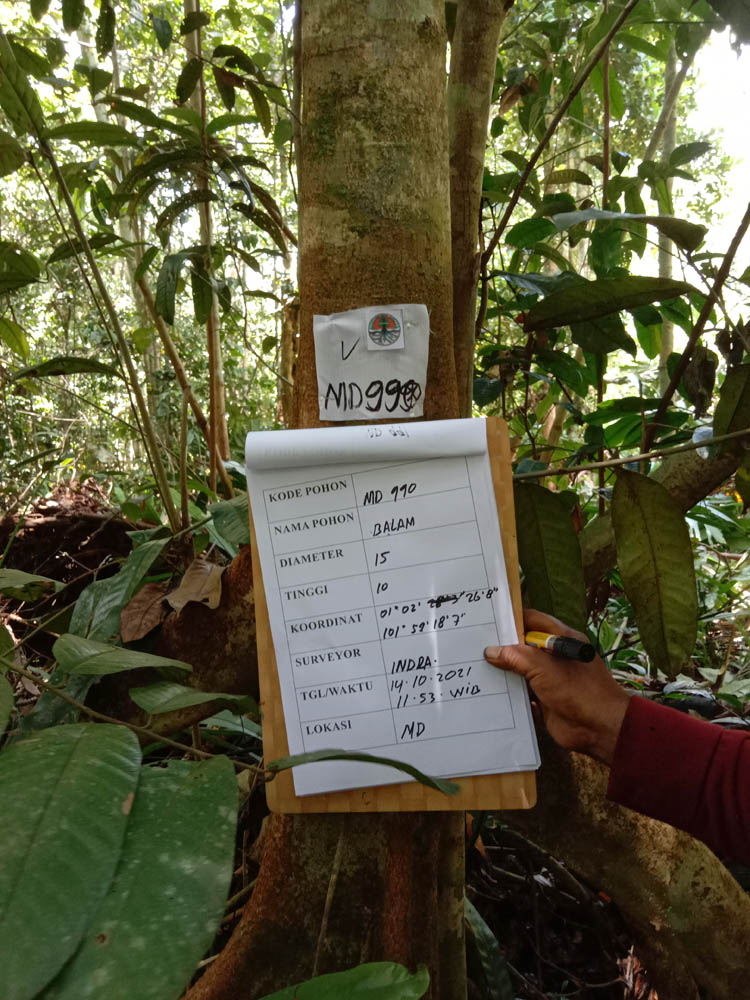 V
MD990
KODE POHON MD 990
NAMA POHON BALAM
DIAMETER 15
TINGGI 10
KOORDINAT 01° 02' 26'8"
101° 59' 18'7"
SURVEYOR INDRA.
TGL/WAKTU 14.10.2021
11.53. WIB
LOKASI MD